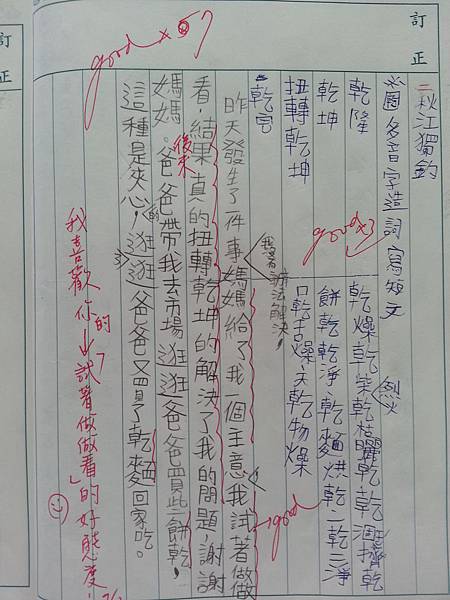 訂正
訂正
二秋江獨釣
圈多音字造詞寫短文
乾隆
乾燥乾柴烈火乾枯曬乾乾涸擠乾
乾坤
餅乾乾淨、乾麵烘乾一乾二淨
扭轉乾坤
口乾舌燥、天乾物燥
good x3
乾宮
我沒辦法解決!
昨天發生了一件事媽媽給了我一個主意我試著做做
good
看,結果真的扭轉乾坤的解決了我的問題,謝謝
媽媽。後來爸爸帶我去市場逛逛爸爸買些餅乾,
這種是夾心的!逛逛爸爸又買了乾麵回家吃。
good x 5
我喜歡你的「試著做做看」的好態度!